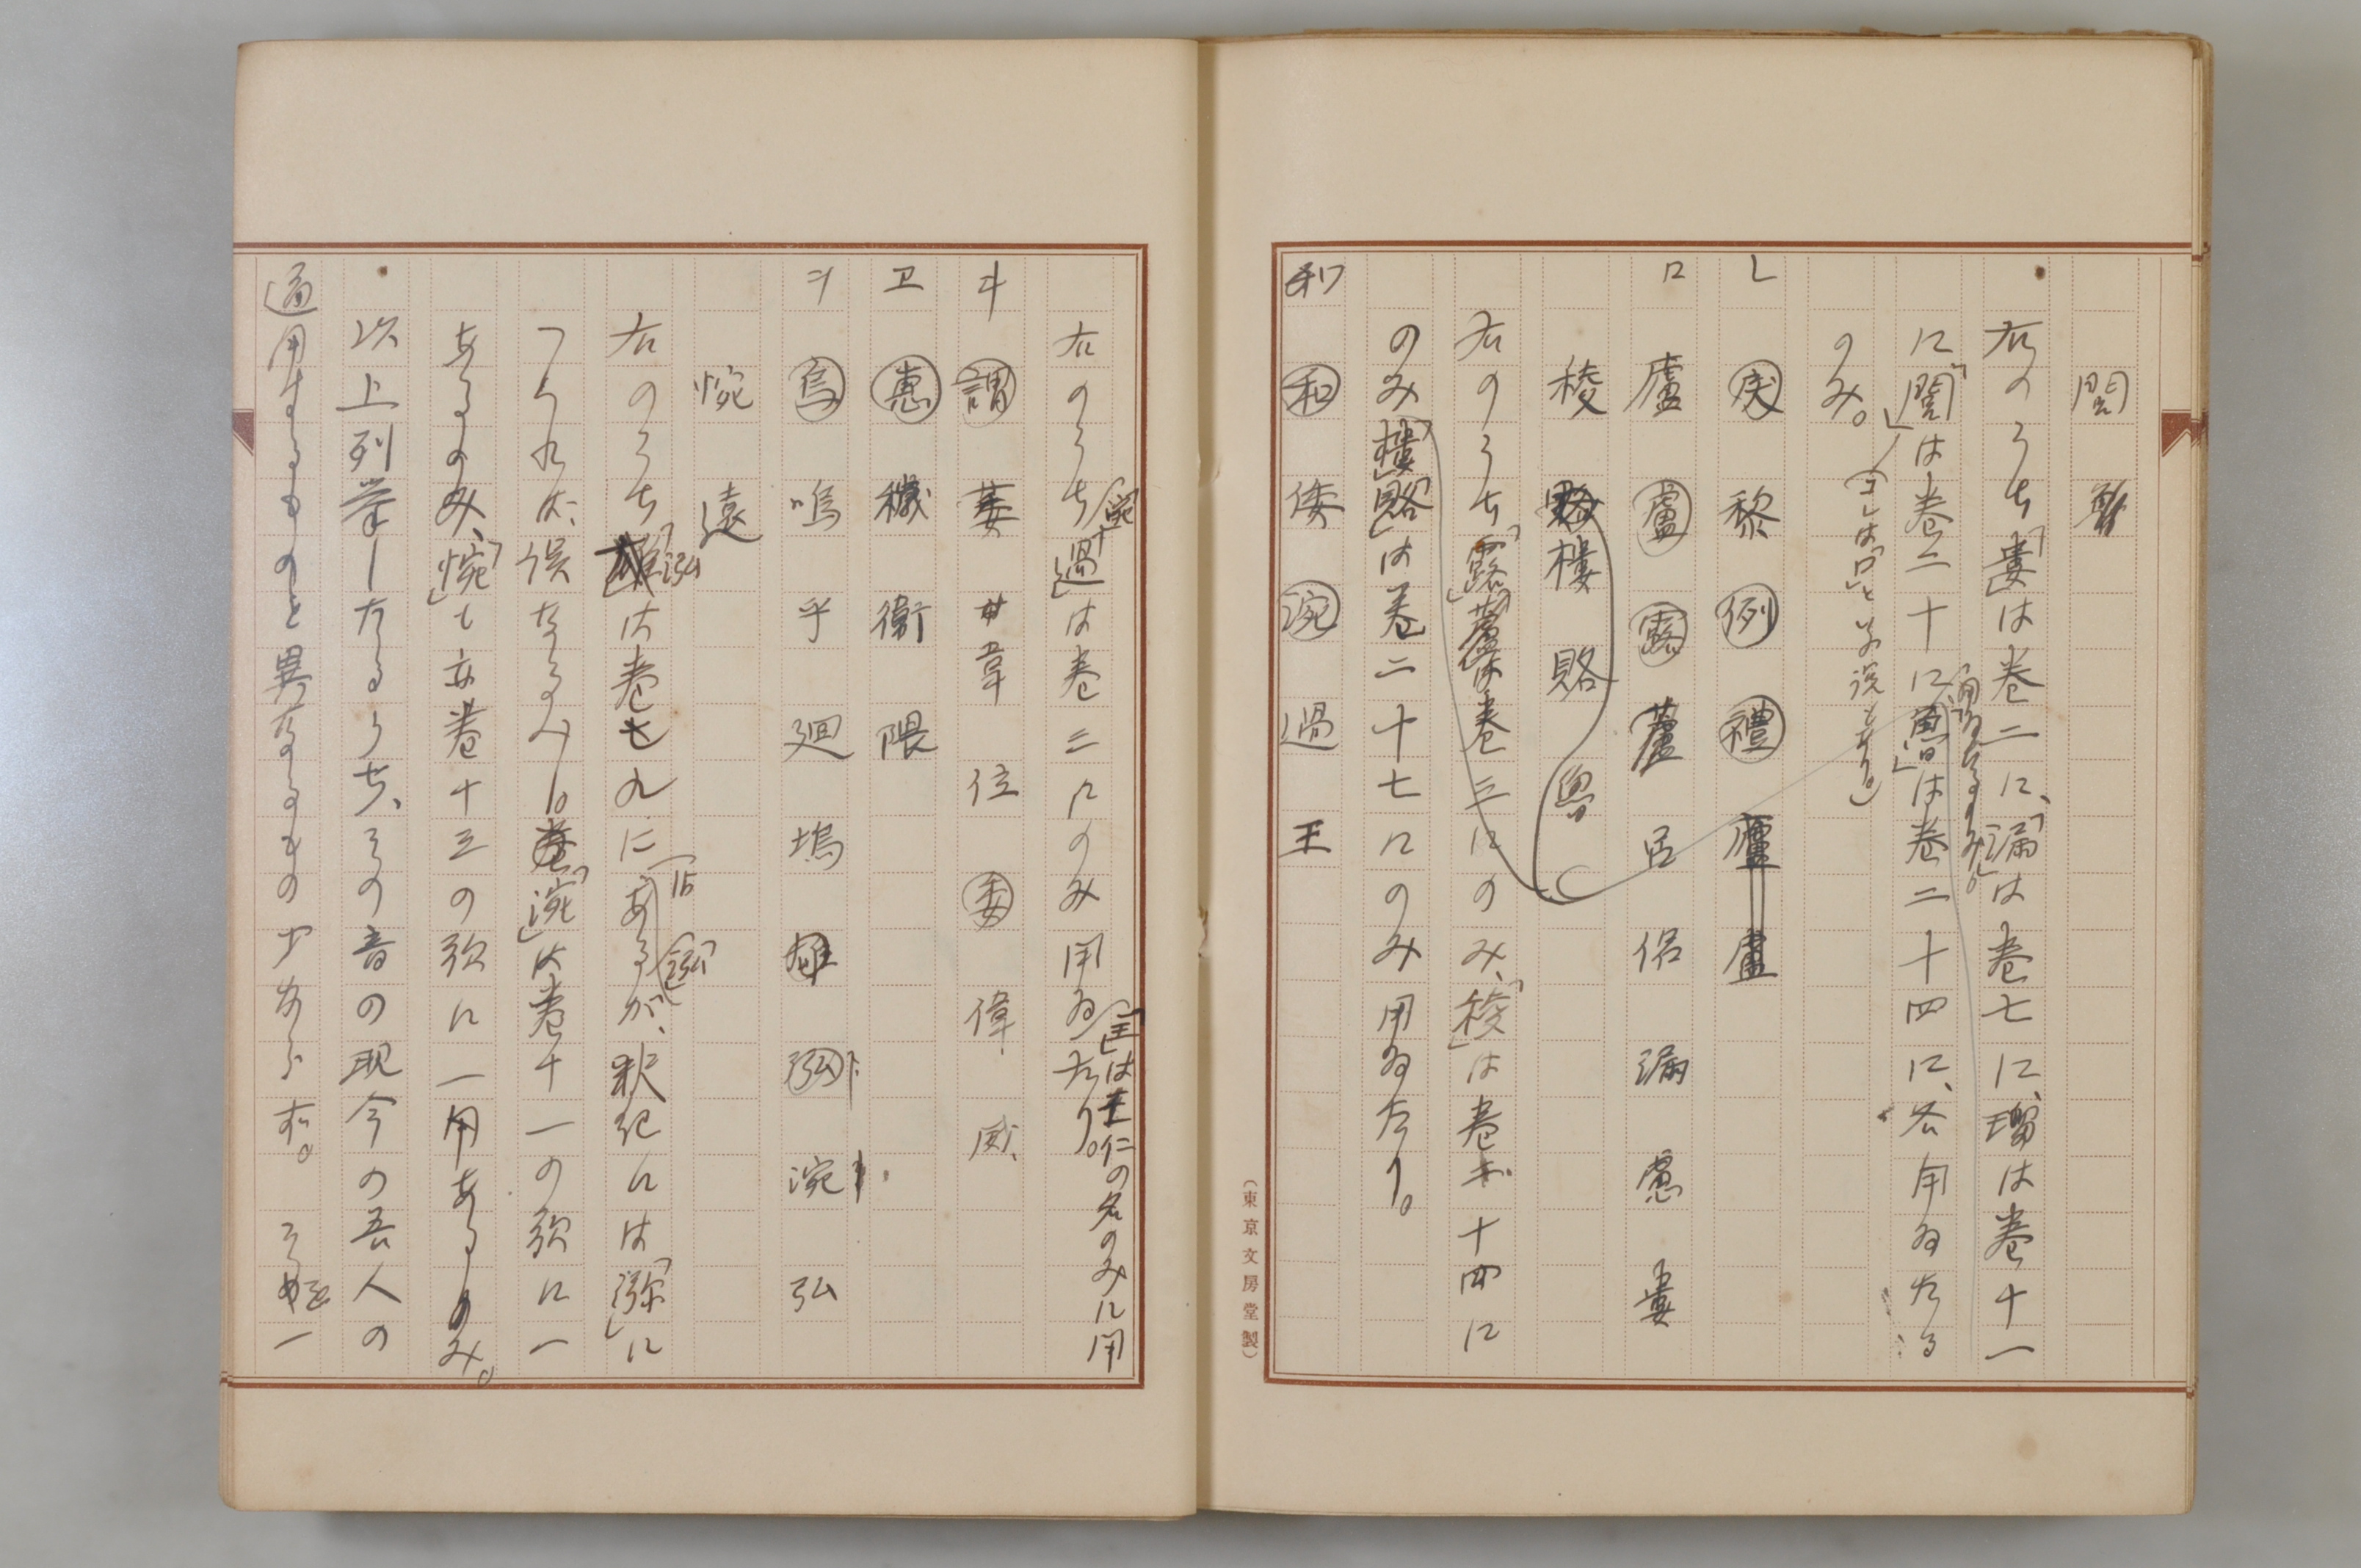 閭
右のうち「婁」は巻二に、「漏」は巻七に、瑠は巻十一
に「閭」は巻二十に「魯」は巻二十四に、各用ゐたる
のみ。
レ 戻 黎 例 禮
ロ 廬 盧 露 蘆 呂 侶 漏 慮 婁
稜 樓 賂 魯
右のうち「露」「蘆」は巻三にのみ、「稜」は巻十四に
のみ「樓」「賂」は巻二十七にのみ用ゐたり。
ワ 和 倭 涴 過 王
(東京文房堂製)
右のうち「過」は巻三にのみ用ゐたり。
ヰ 謂 萎 韋 位 委 偉 威
ヱ 惠 穢 衞 隈
ヲ 烏 嗚 乎 廻 塢 弘
惋 遠
右のうち 弘 は巻九にあるが、釈紀には「弥」に
つくれば、誤なるべし。「涴」は巻十一の歌に一
あるのみ、「惋」も亦巻十三の歌に一用あるのみ。
以上列挙したるうち、その音の現今の吾人の
通用するものと異なるもの少からず。 一